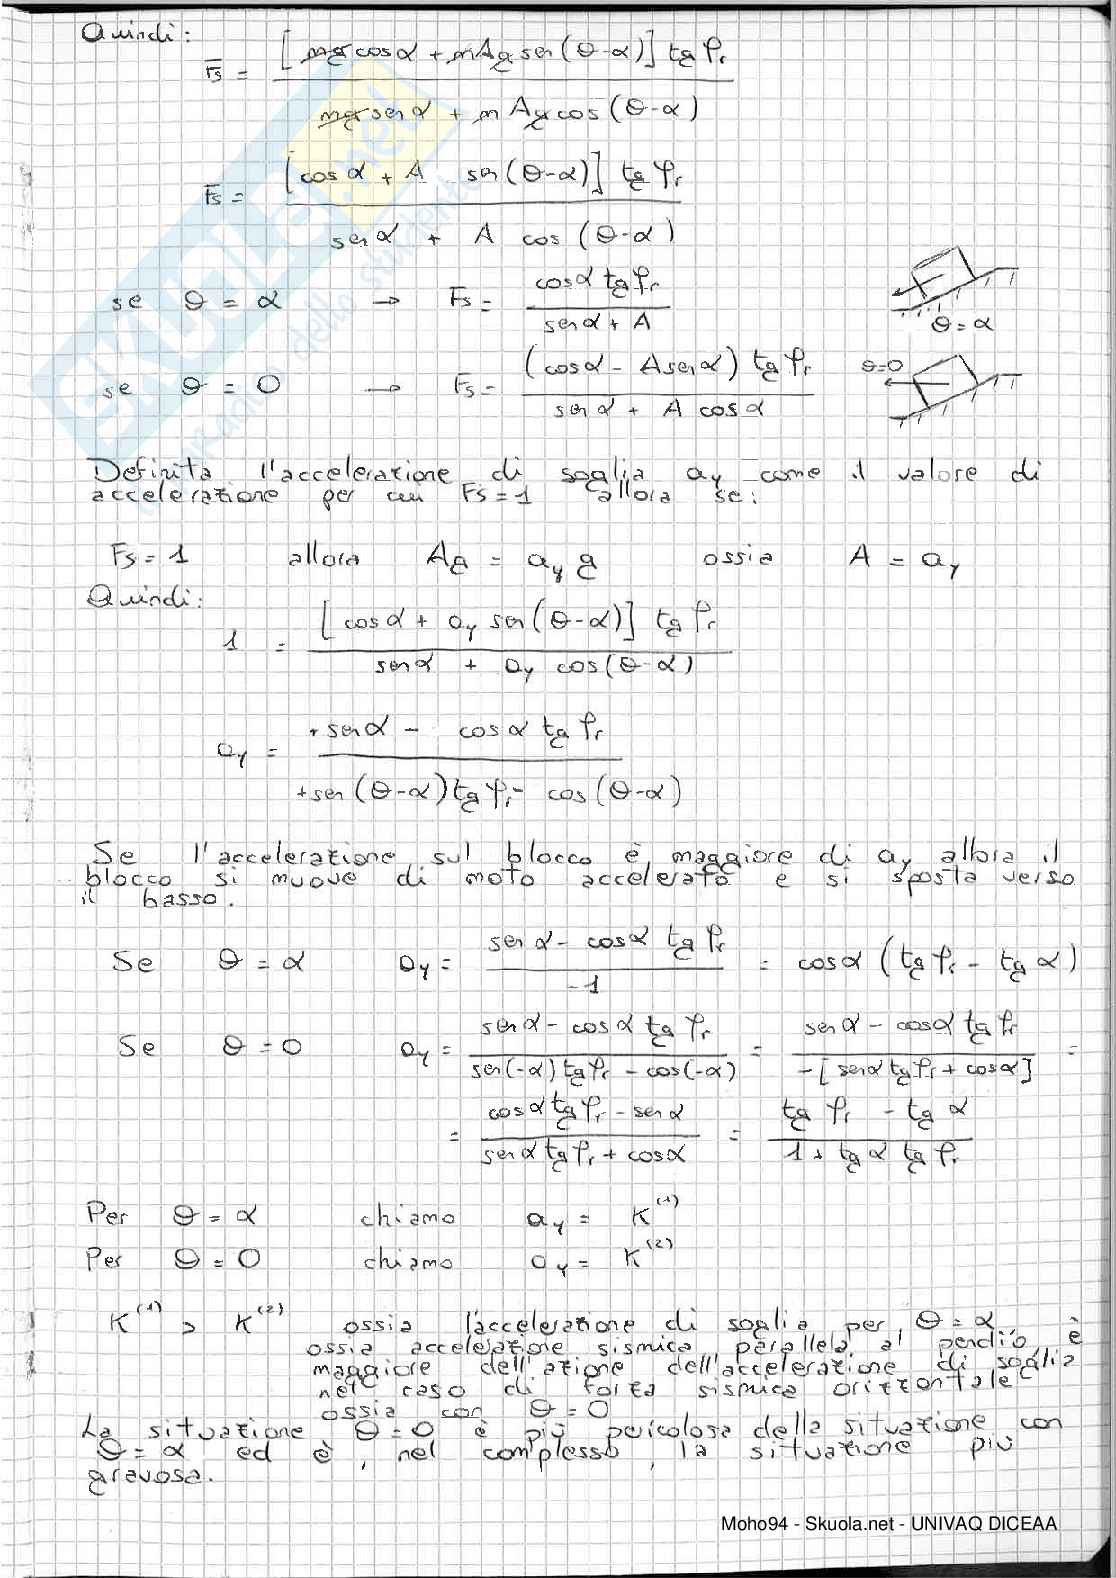 Quindi:
Fs = [mg cosα + mAg sen(θ-α)] tg φr / mg senα + mAg cos(θ-α)
Fs = [cosα + A sen(θ-α)] tg φr / senα + A cos(θ-α)
se θ = α → Fs = cosα tg φr / senα + A
θ = α
se θ = 0 → Fs = (cosα - A senα) tg φr / senα + A cosα
θ=0
Definita l'accelerazione di soglia ay come il valore di
accelerazione per cui Fs = 1 allora se:
Fs = 1 allora Ag = ay g ossia A = ay
Quindi:
1 = [cosα + ay sen(θ-α)] tg φr / senα + ay cos(θ-α)
ay = + senα - cosα tg φr / + sen(θ-α) tg φr - cos(θ-α)
Se l'accelerazione sul blocco è maggiore di ay allora il
blocco si muove di moto accelerato e si sposta verso
il basso.
Se θ = α ay = senα - cosα tg φr / -1 = cosα (tg φr - tg α)
Se θ = 0 ay = senα - cosα tg φr / sen(-α) tg φr - cos(-α) = senα - cosα tg φr / -[senα tg φr + cosα] =
= cosα tg φr - senα / senα tg φr + cosα = tg φr - tg α / 1 + tg α tg φr
Per θ = α chiamo ay = K(1)
Per θ = 0 chiamo ay = K(2)
K(1) > K(2) ossia l'accelerazione di soglia per θ = α
ossia accelerazione sismica parallela al pendio è
maggiore dell'azione dell'accelerazione di soglia
nel caso di forza sismica orizzontale
ossia con θ = 0
La situazione θ = 0 è più pericolosa della situazione con
θ = α ed è, nel complesso, la situazione più
gravosa.
SKUOLA.net
Moho94 - Skuola.net - UNIVAQ DICEAA